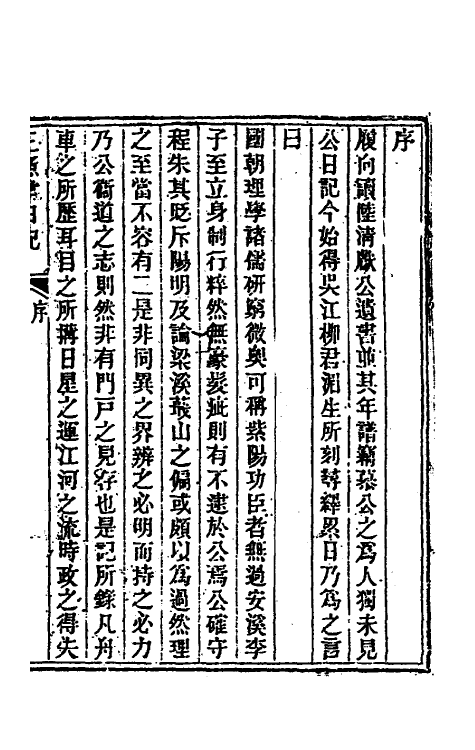 序
履向讀陸清獻公遺書並其年譜竊慕公之爲人獨未見
公日記今始得吳江柳君湄生所刻尋繹累日乃爲之言
曰
國朝理學諸儒研窮微奧可稱紫陽功臣者無過安溪李
子至立身制行粹然無豪髮疵則有不逮於公焉公確守
程朱其貶斥陽明及論梁溪蕺山之偏或頗以爲過然理
之至當不容有二是非同異之界辨之必明而持之必力
乃公衞道之志則然非有門戶之見存也是記所錄凡舟
車之所歷耳目之所搆日星之運江河之流時政之得失
日記
序